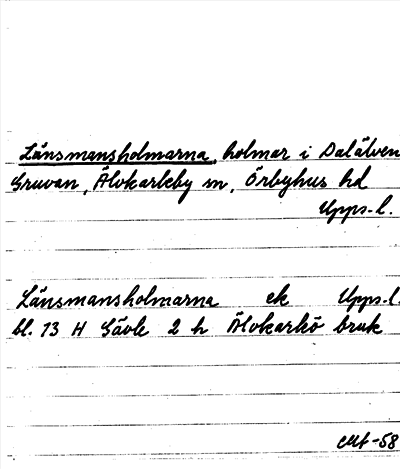 Länsmansholmarna, holmar i Dalälven
Gruvan, Älvkarleby sn, Örbyhus hd
Upps. l.
Länsmansholmarna ek Upps. l.
bl. 13 H Gävle 2 h Älvkarleö bruk
-58